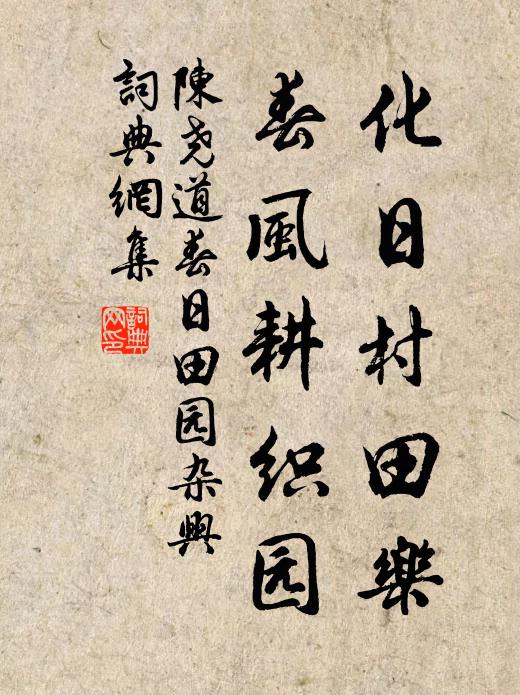 化日村田樂
春風耕织园
陳尧道春日田园杂興
詞典網集
詞典网印